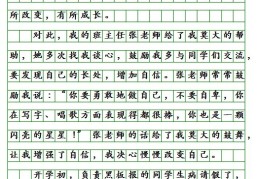 所改变，有所成长。
对此，我的班主任张老师给了我莫大的帮
助，她多次找我谈心，鼓励我多与同学们交流，
要发现自己的长处，增加自信。张老师常常鼓
励我说：“你要勇敢地做自己，不要自卑，你
在写字、唱歌方面表现得都很棒，你也是一颗
闪亮的星星！”张老师的话给了我莫大的鼓舞，
让我增强了自信，我决心慢慢改变自己。
开学初，负责黑板报的同学生病请假了，